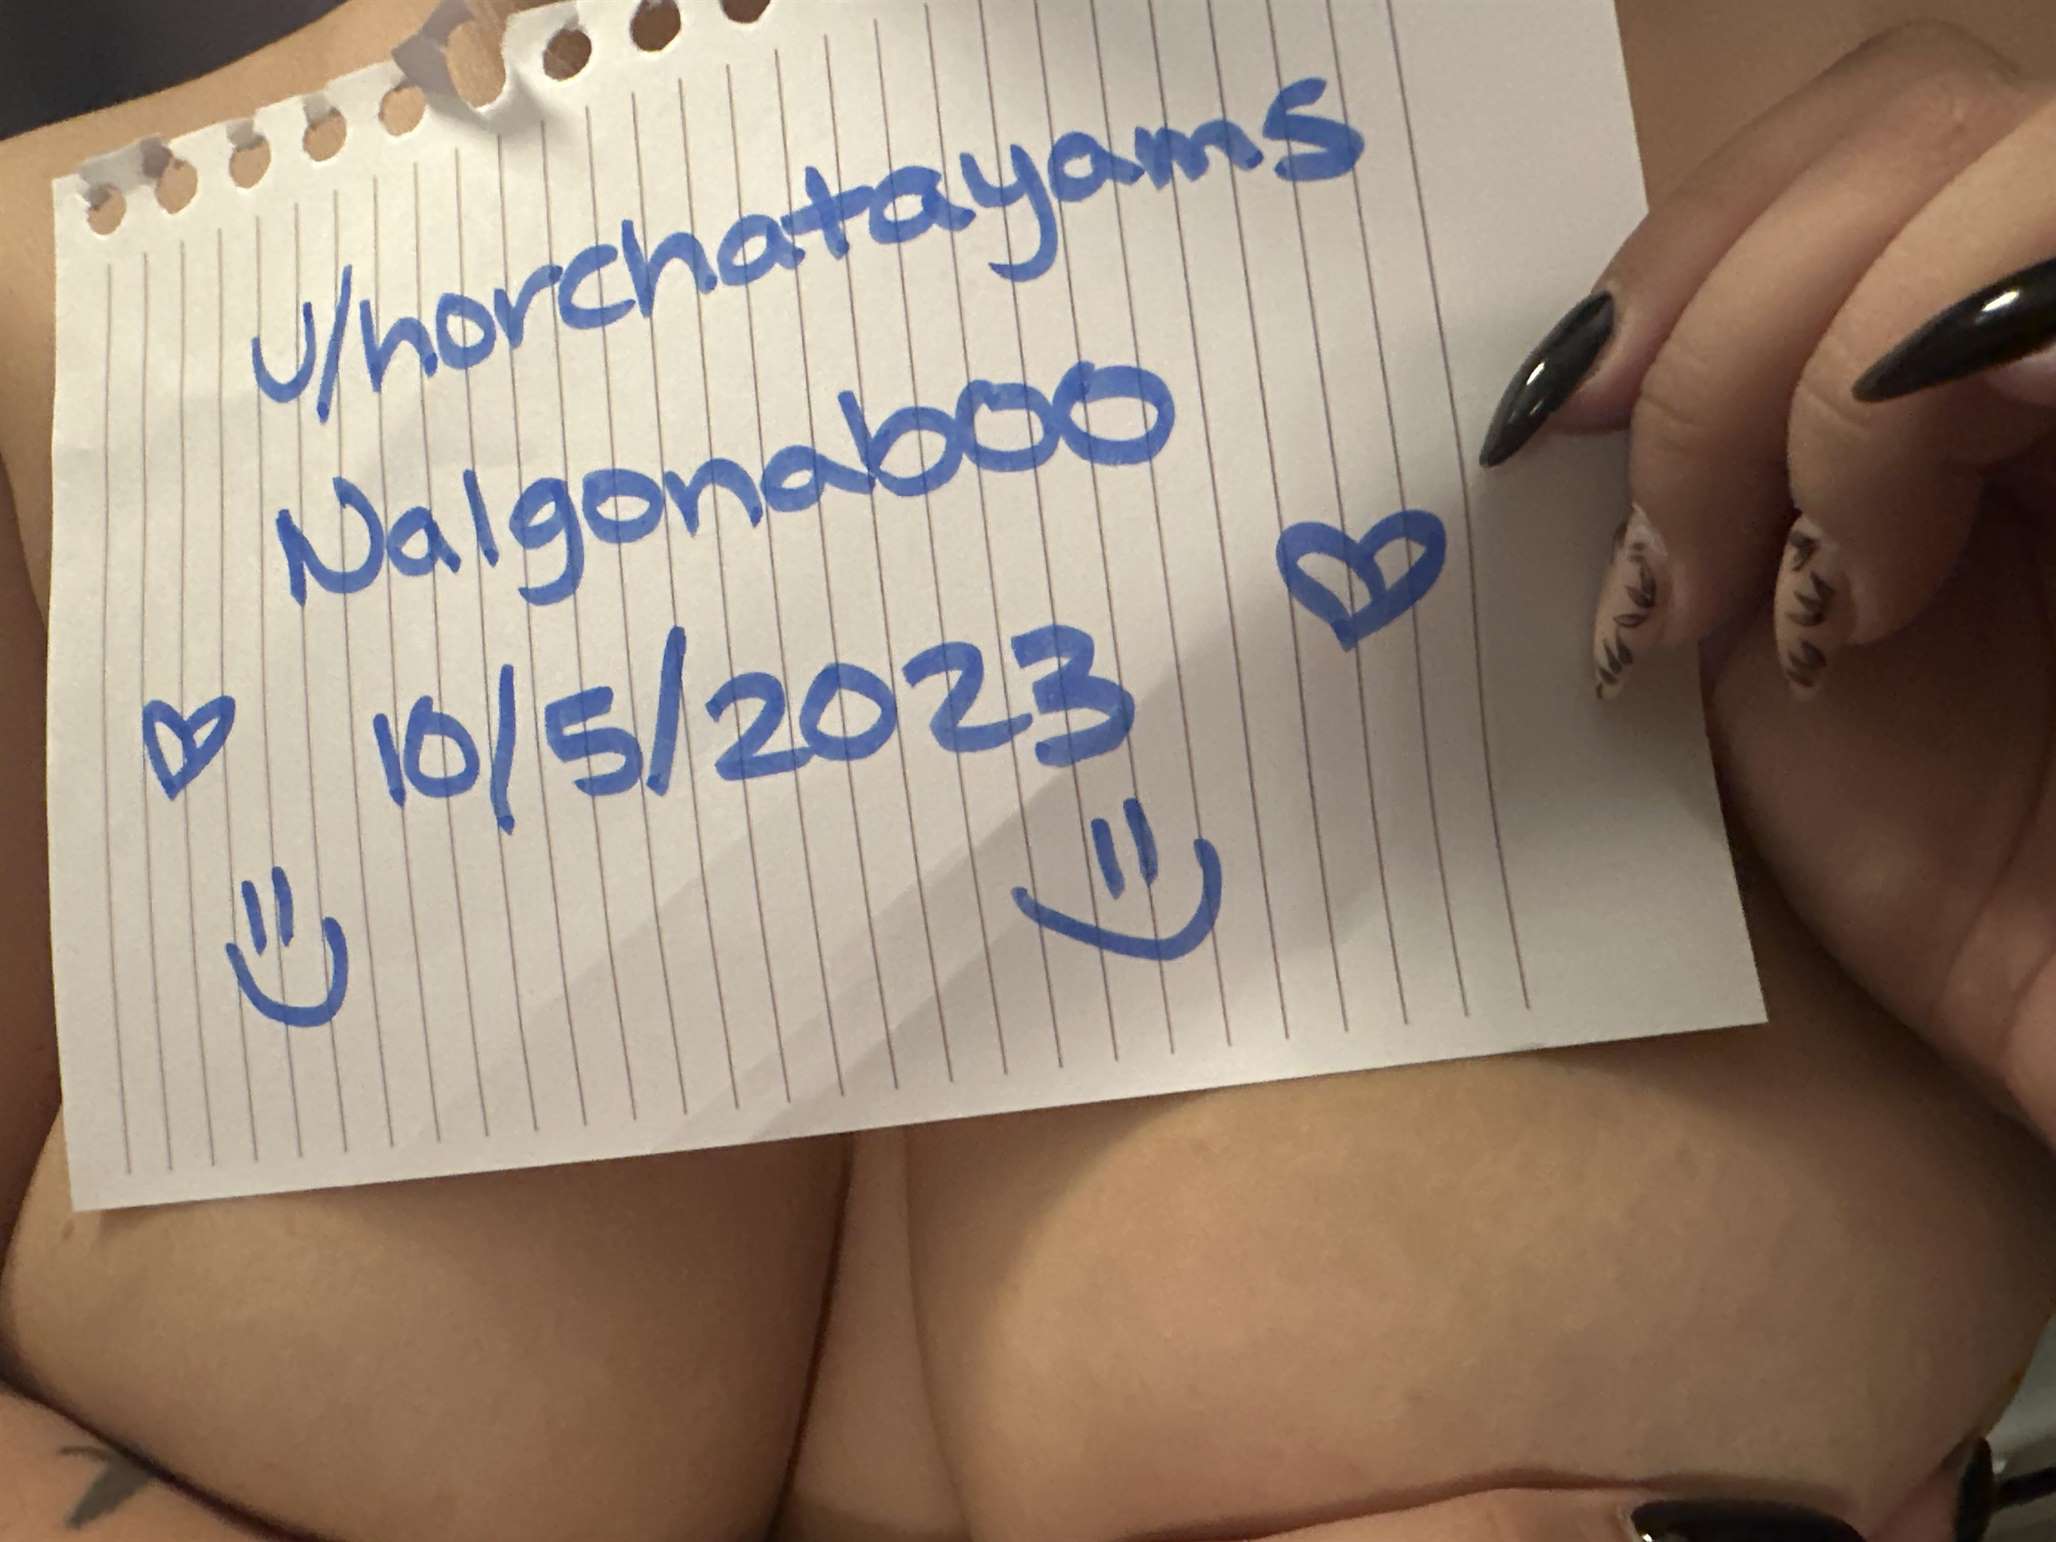 u/horchatayams
Nalgonaboo
10/5/2023